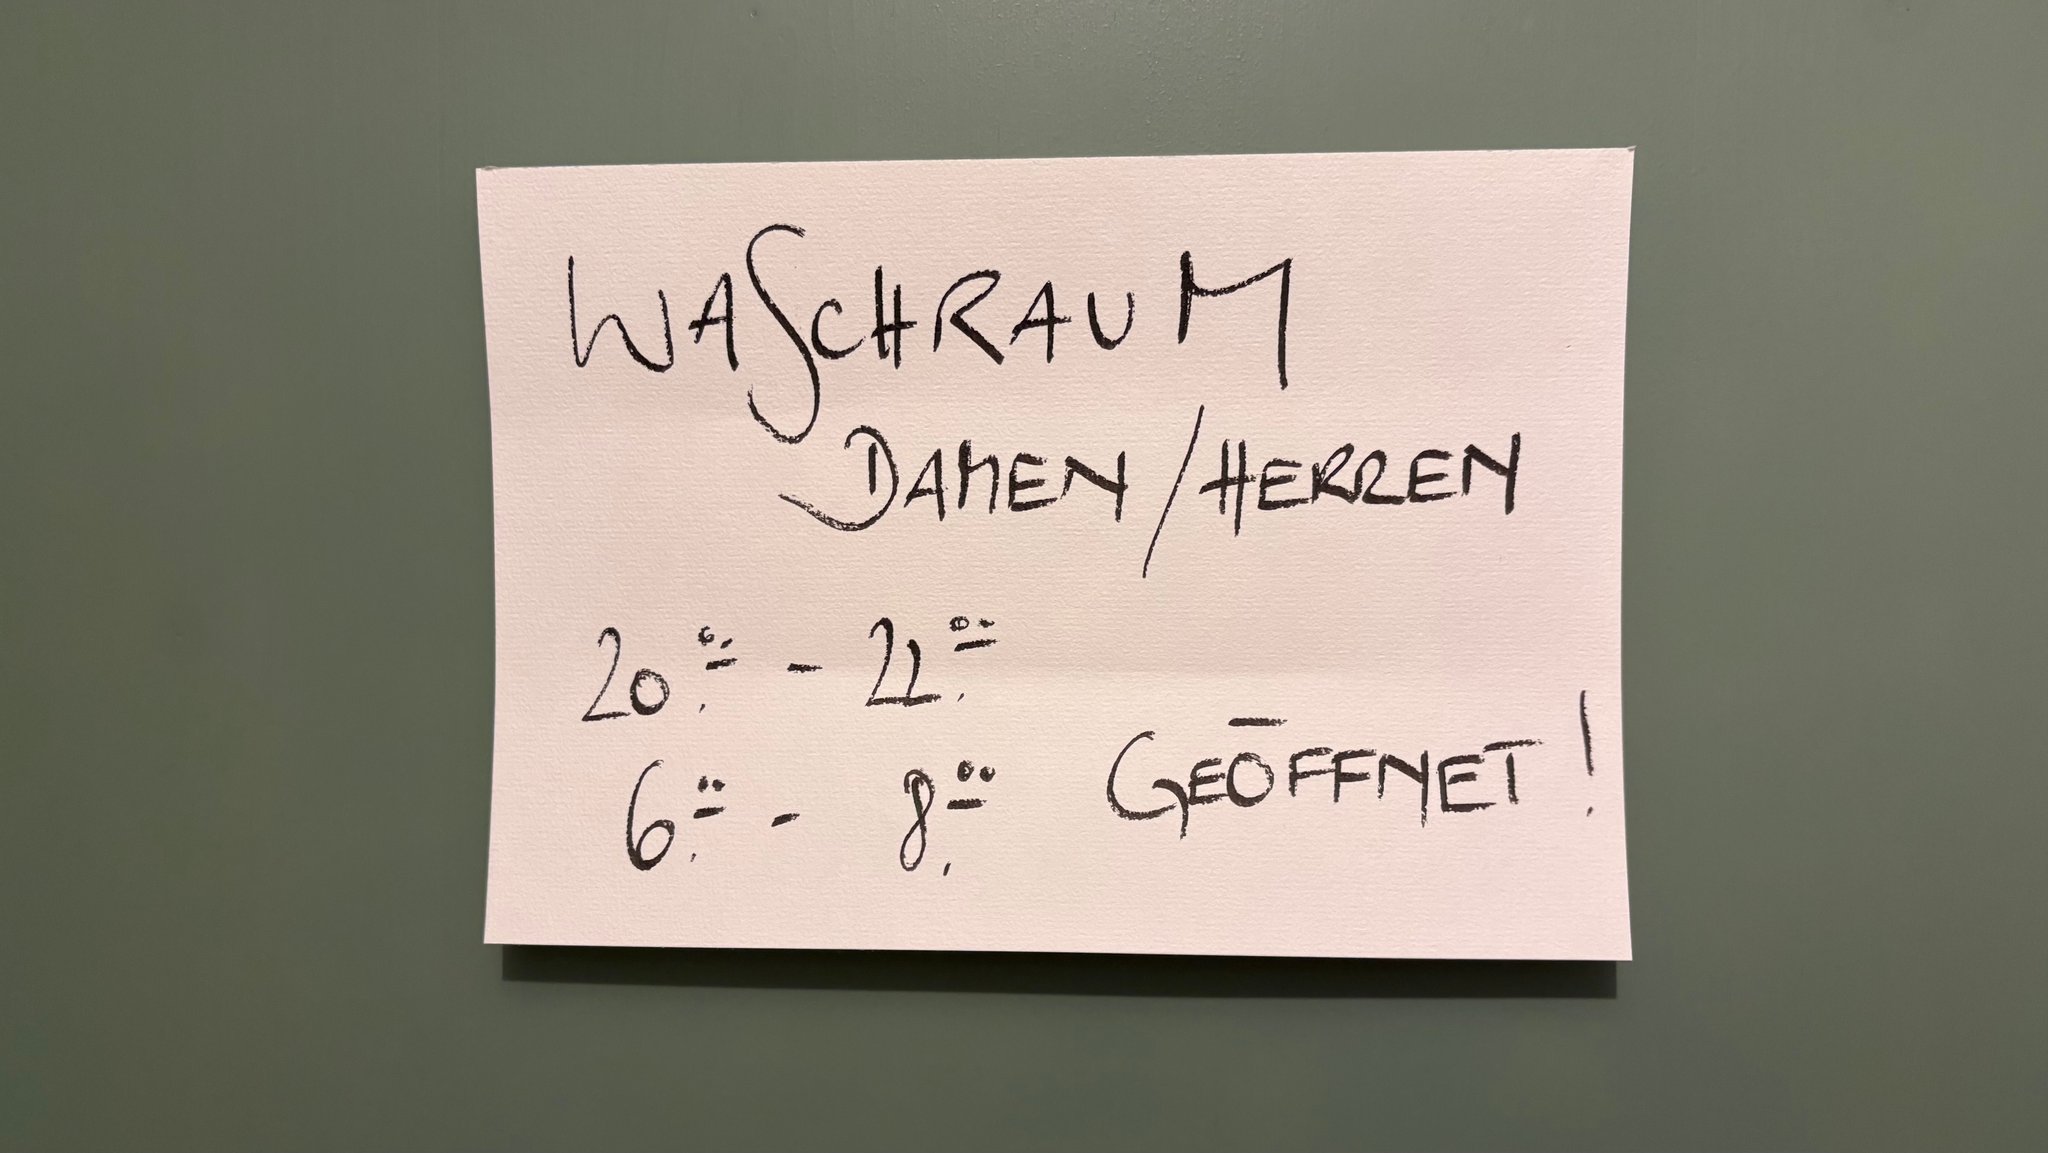 WASCHRAUM
DAMEN / HERREN
20.⁰⁰ - 22.⁰⁰
6.⁰⁰ - 8.⁰⁰ GEÖFFNET!